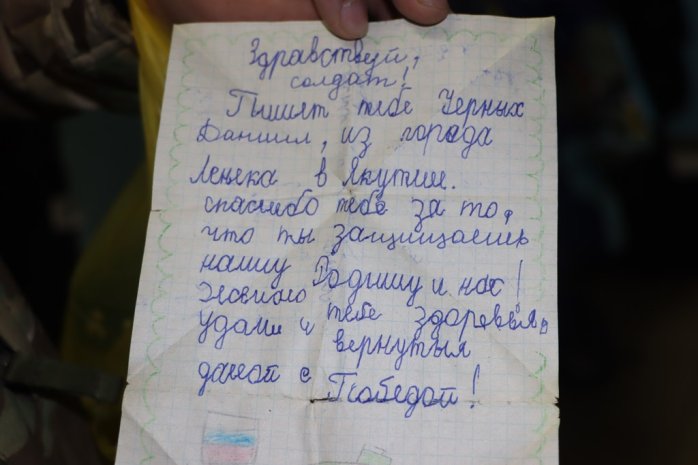 Здравствуй,
солдат!
Пишет тебе Черных
Даниил, из города
Ленска в Якутии.
спасибо тебе за то,
что ты защищаешь
нашу Родину и нас!
Желаю тебе здоровья,
удачи и вернуться
домой с Победой!